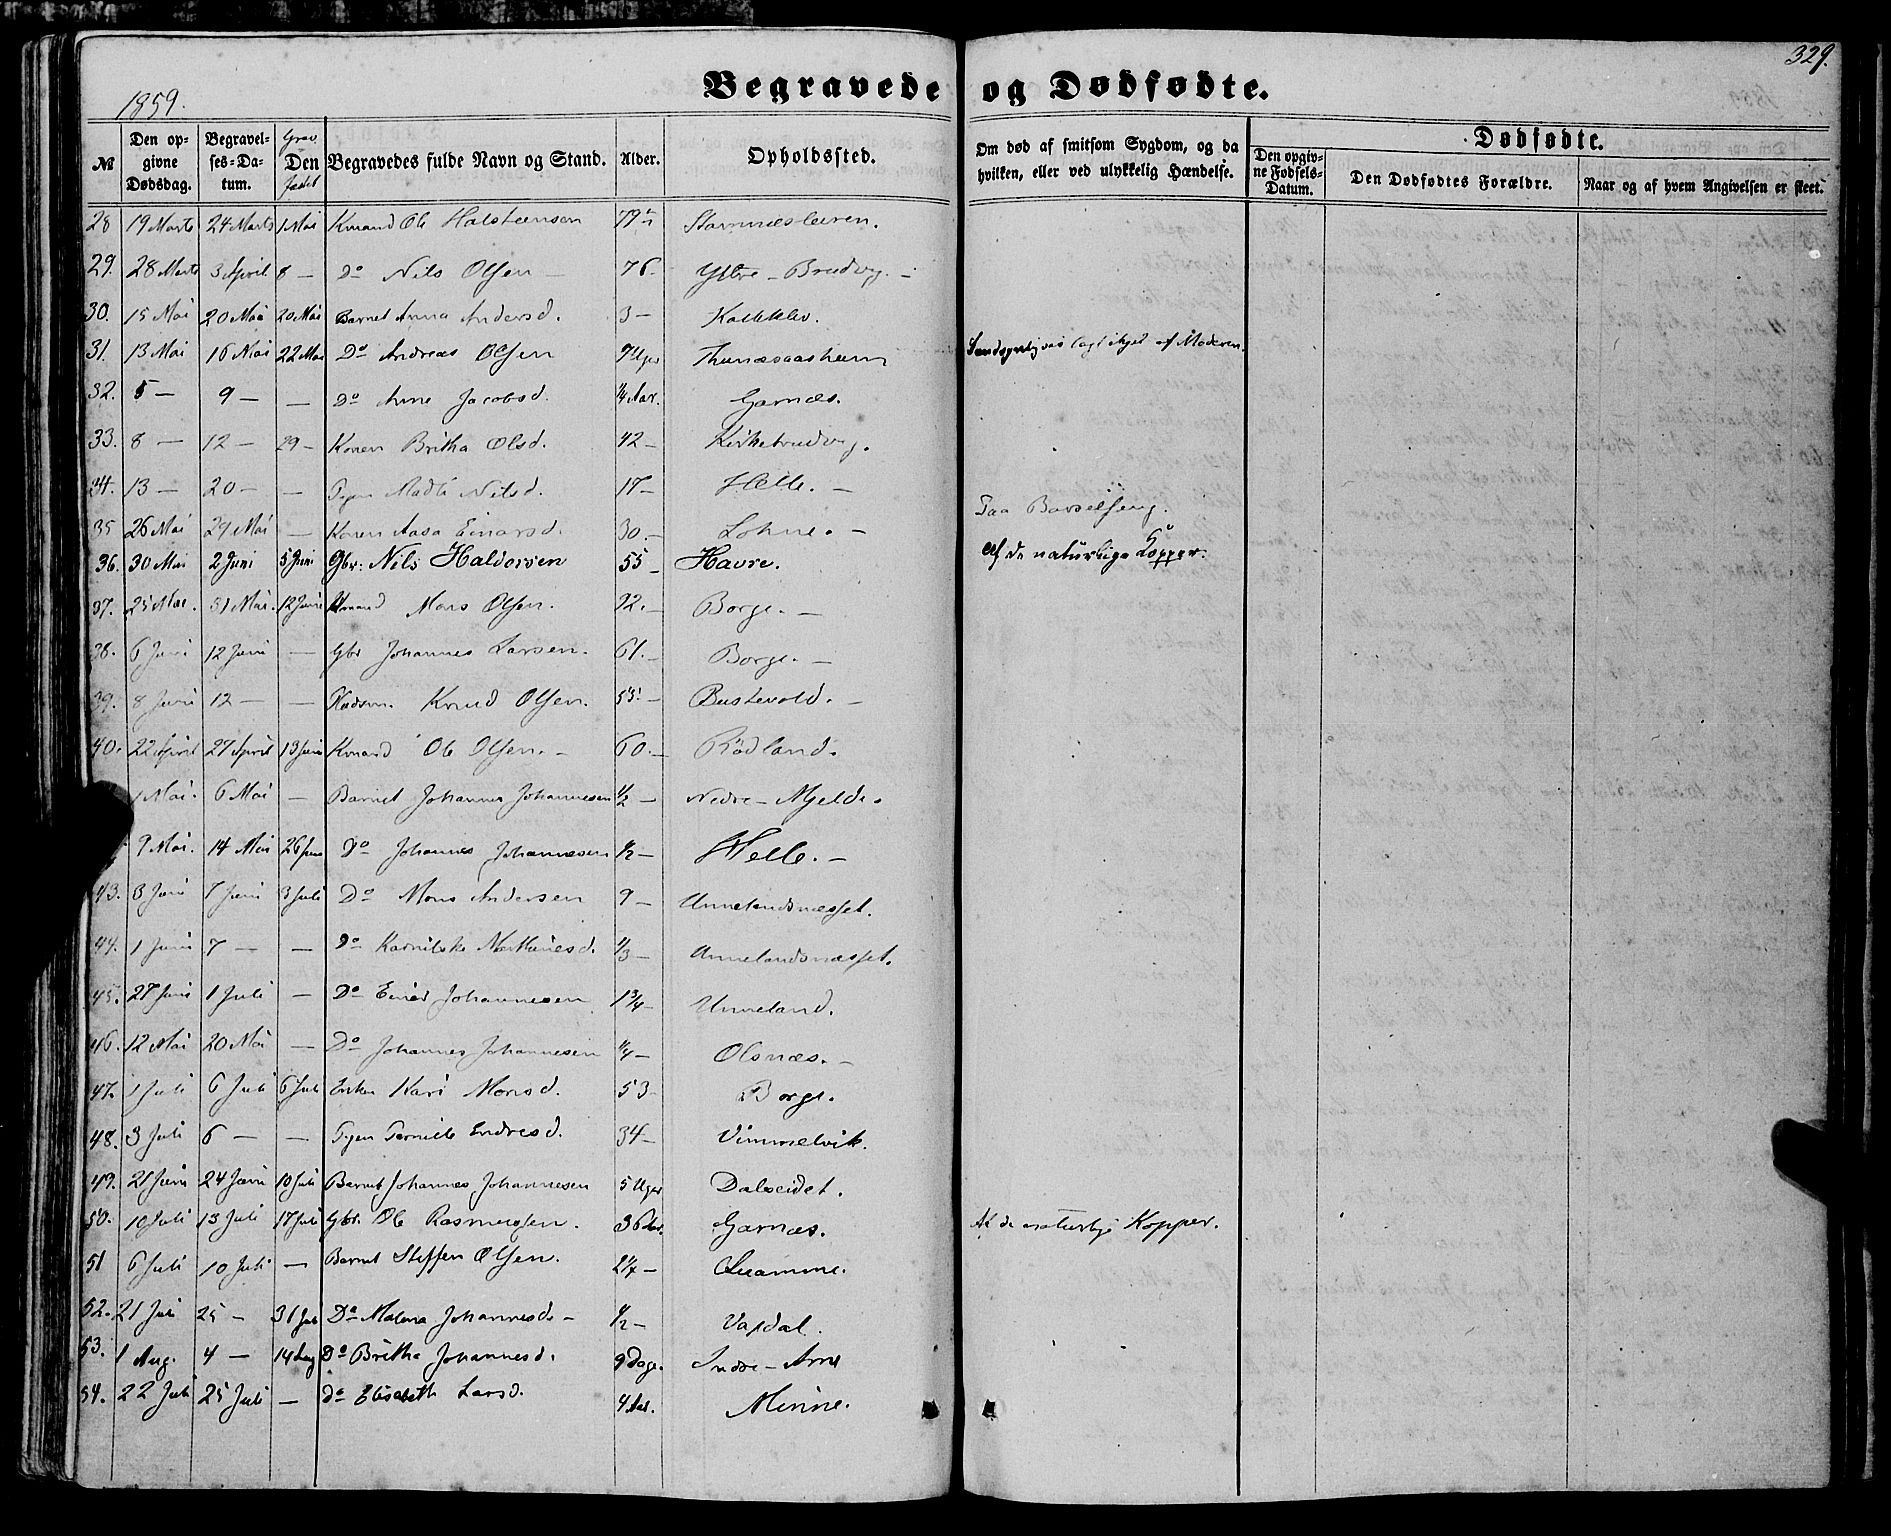 329.
1859.
Begravede og Dødfødte.
№ Den opgivne Dødsdag. Begravelses-Datum. Grav Den fæstet Begravedes fulde Navn og Stand. Alder. Opholdssted. Om død af smitsom Sygdom, og da hvilken, eller ved ulykkelig Hændelse. Dødfødte. Den opgivne Fødsels-Datum. Den Dødfødtes Forældre. Naar og af hvem Angivelsen er skeet.
28 19 Marts 24 Marts 1 Mai Kmand Ole Halsteensen 79 Stamnæsleiren.
29. 28 Marts 3 April 8 — Do Nils Olsen — 76. Yttre - Brudvig. -
30. 15 Mai 20 Mai 20 Mai Barnet Anna Andersd. 3 — Kalleklev.
31. 13 Mai 16 Mai 22 Mai Do Andreas Olsen 9 Uger Thunæsaasheim lagt ihjel af Moderen.
32. 5 — 9 — — Do Anne Jacobsd. 1/4 Aar. Garnæs.
33. 8 — 12 — 29 — Konen Britha Olsd. 42 — Kirkebrudvig.
34. 13 — 20 — — Pigen Madli Nilsd. 17 — Helle. —
35 26 Mai 29 Mai — Konen Aasa Einarsd. 30. — Lohne. — Paa Barselseng.
36. 30 Mai 2 Juni 5 Juni Gbr: Nils Haldorsen 55 — Havre. Af de natürlige Kopper.
37. 25 Mai. 31 Mai. 12 Juni Kmand Mons Olsen. 92. — Borge. —
38. 6 Juni 12 Juni — Gbr Johannes Larsen. 61. — Borge. —
39. 8 Juni 12 — — Knud Olsen. 55. — Bustevold. —
40. 22 April 27 April 13 Juni Kmand Ole Olsen. — 60. — Rödland.
1 Mai. 6 Mai — Barnet Johannes Johannesen 1/2 — Nedre - Mjelde.
9 Mai. 14 Mai 26 Juni Do Johannes Johannesen 1/2 — Helle. —
43. 3 Juni 7 Juni 3 Juli Do Mons Andersen 9 — Unnelandsnæsset.
44. 1 Juni 7 — — Do Mathiesd. 1/3 — Unnelandsnæsset.
45. 27 Juni 1 Juli — Do Einar Johannesen 1 3/4 — Unneland.
46. 12 Mai 20 Mai — Do Johannes Johannesen 1/4 — Olsnæs. —
47. 1 Juli 6 Juli 6 Juli Enken Kari Monsd. 53 — Borge.
48. 3 Juli 6 — — Pigen Pernille Endresd. 34 — Vimmelvik.
49. 21 Juni 24 Juni 10 Juli Barnet Johannes Johannesen 5 Uger Dalseidet.
50. 10 Juli 13 Juli 17 Juli Gbr. Ole Rasmussen. 36 Aar. Garnæs. Af de naturlige Kopper.
51 6 Juli 10 Juli — Barnet Steffen Olsen. —
52. 21 Juli 25 — 31 Juli Do Malena Johannesd. — 1/2 — Vaxdal.
53. 1 Aug. 4 — 14 Aug Do Britha Johannesd. 9 Dage. Indre - Arne
54. 22 Juli 25 Juli — do Elisabeth Larsd. 4 Aar. Minne.